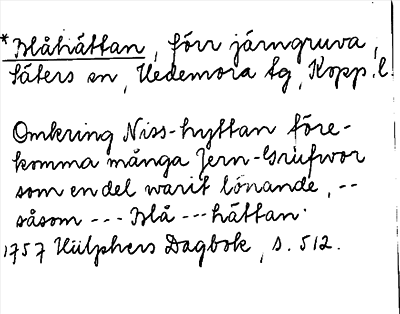 *Blåhättan, förr järngruva,
Säters sn, Hedemora tg, Kopp. l.
Omkring Niss-hyttan före-
komma många Jern-Grufwor
som en del warit lönande, --
såsom --- Blå---hättan.
1757 Hülphers Dagbok, s. 512.